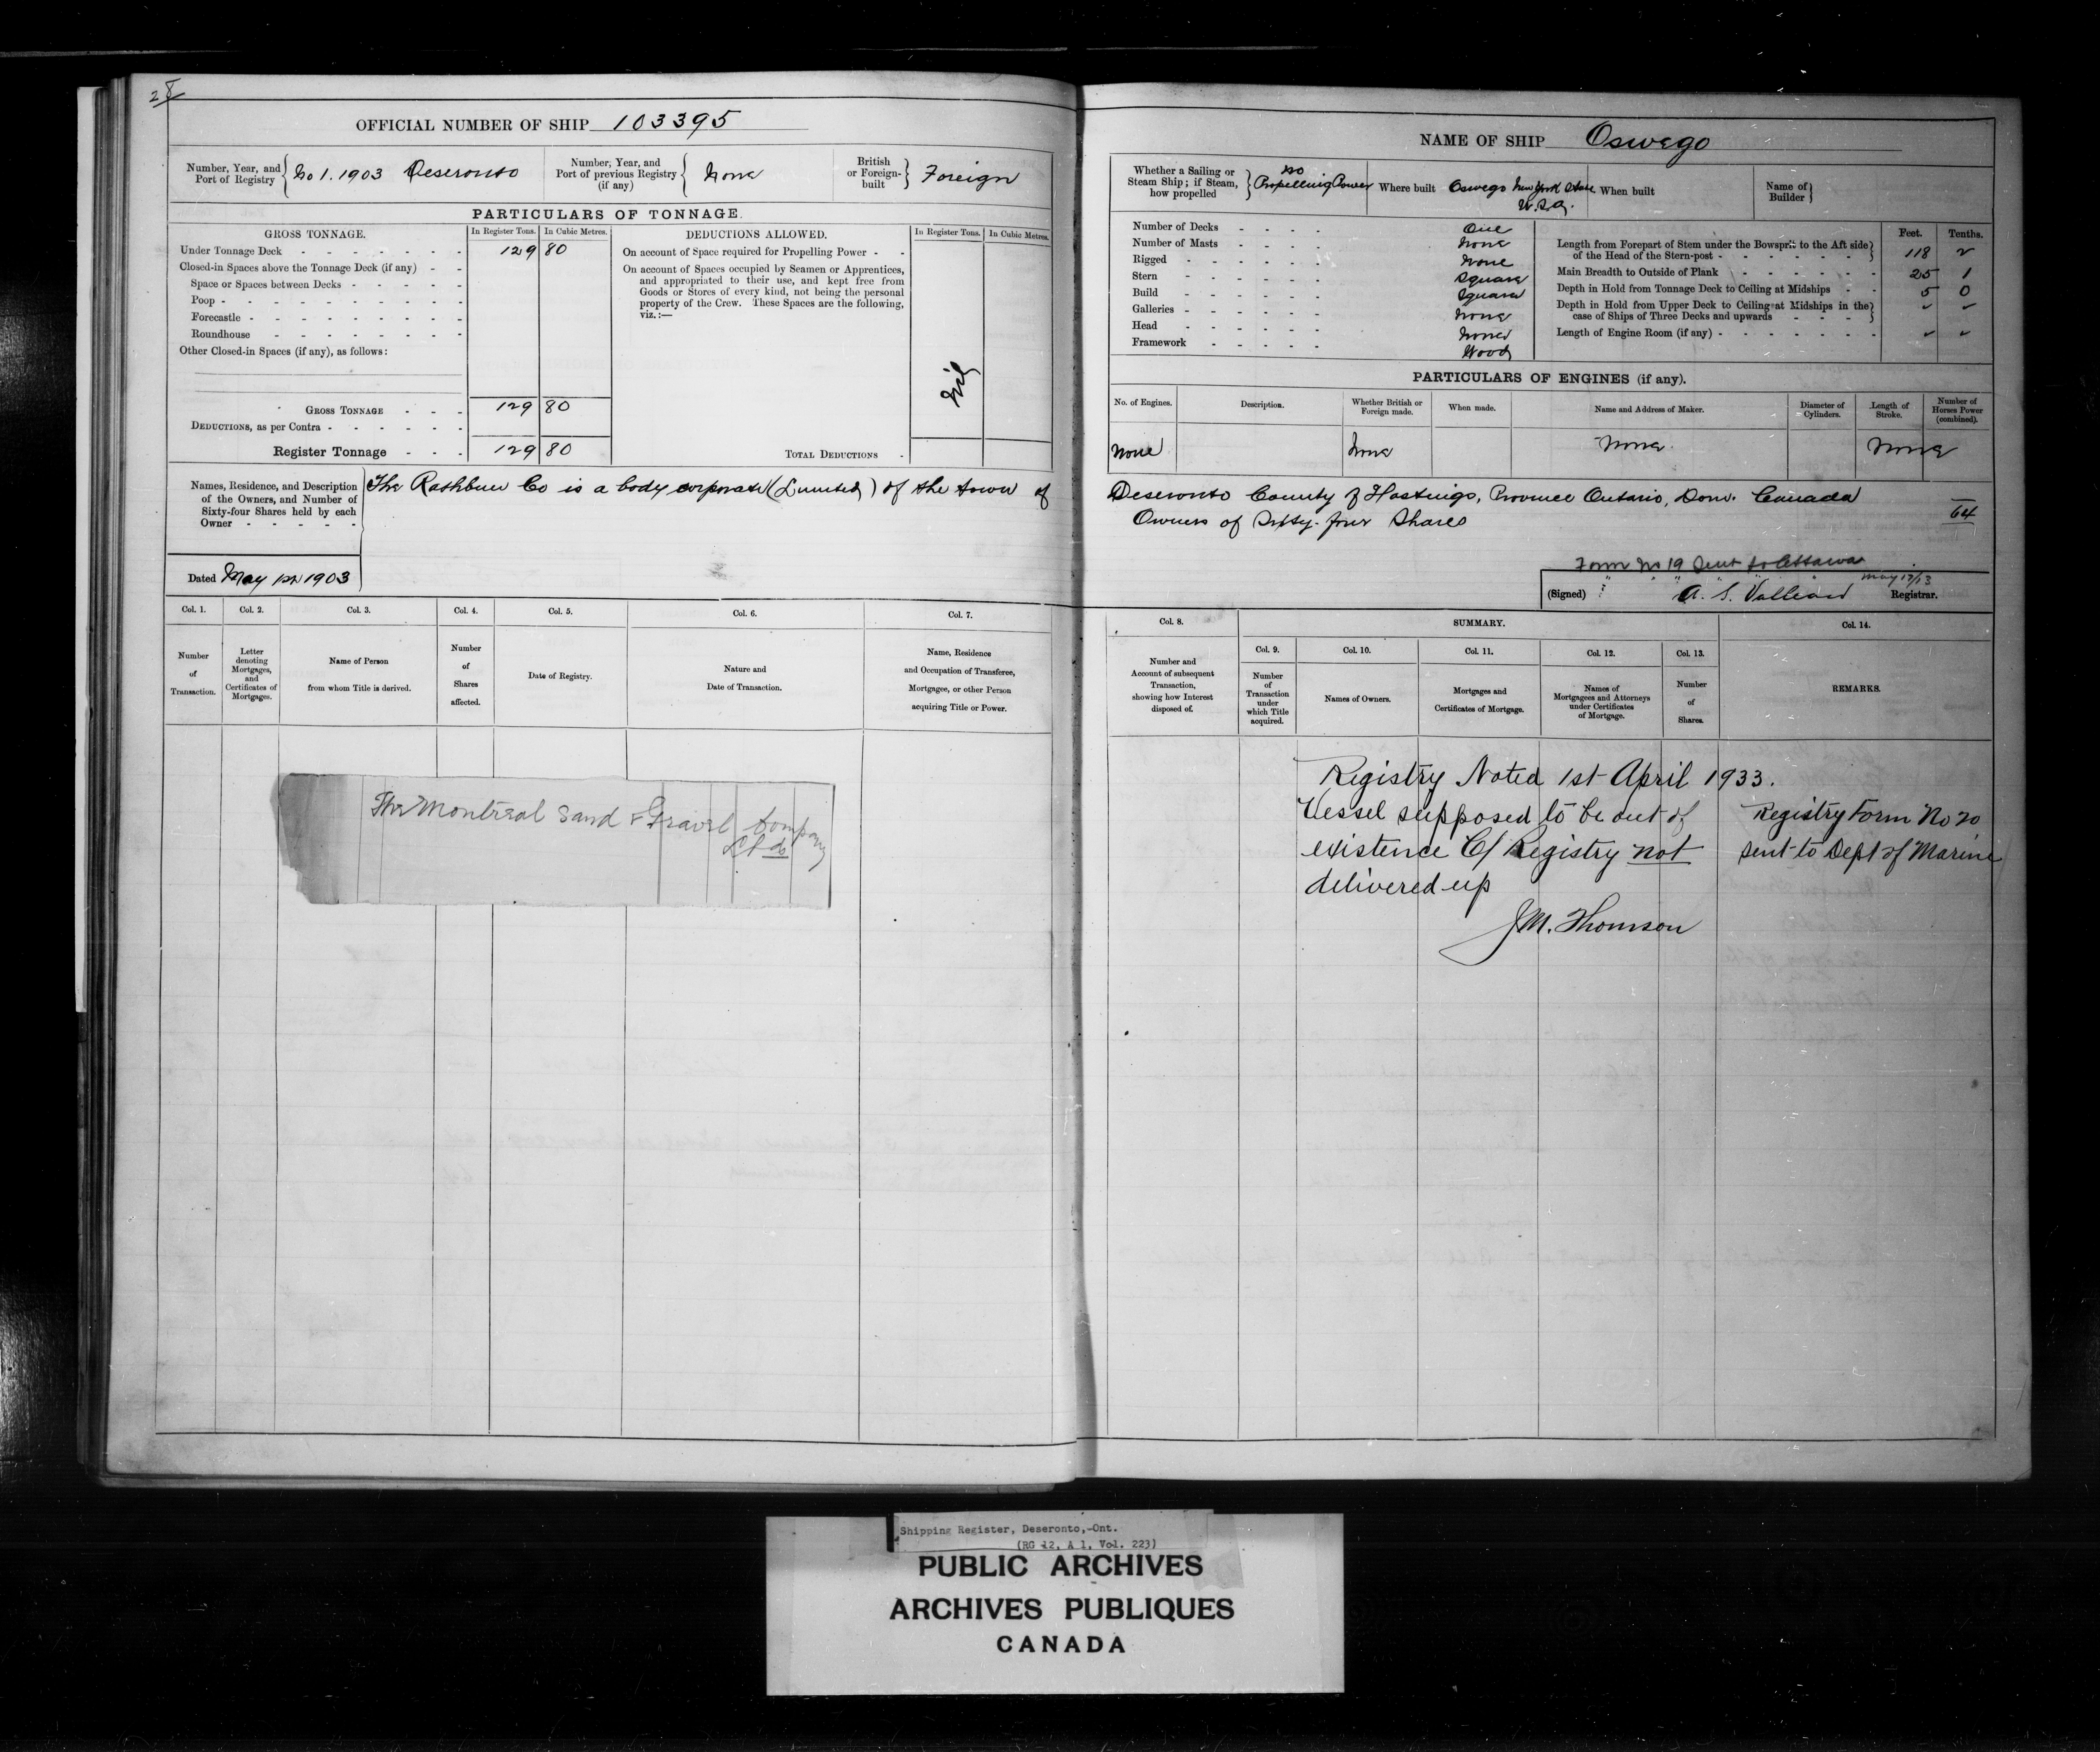 28
OFFICIAL NUMBER OF SHIP 103395
Number, Year, and Port of Registry No 1. 1903 Deseronto
Number, Year, and Port of previous Registry (if any) None
British or Foreign-built Foreign
PARTICULARS OF TONNAGE.
GROSS TONNAGE. In Register Tons. In Cubic Metres.
DEDUCTIONS ALLOWED. In Register Tons. In Cubic Metres.
Under Tonnage Deck 129 80
Closed-in Spaces above the Tonnage Deck (if any)
Space or Spaces between Decks
Poop
Forecastle
Roundhouse
Other Closed-in Spaces (if any), as follows:
GROSS TONNAGE 129 80
DEDUCTIONS, as per Contra
Register Tonnage 129 80
On account of Space required for Propelling Power
On account of Spaces occupied by Seamen or Apprentices,
and appropriated to their use, and kept free from
Goods or Stores of every kind, not being the personal
property of the Crew. These Spaces are the following,
viz.:—
Nil
TOTAL DEDUCTIONS
Names, Residence, and Description
of the Owners, and Number of
Sixty-four Shares held by each
Owner
The Rathbun Co is a body corporate (Limited) of the town of
Dated May 1903
Col. 1. Col. 2. Col. 3. Col. 4. Col. 5. Col. 6. Col. 7.
Number of Transaction.
Letter denoting Mortgages, and Certificates of Mortgages.
Name of Person from whom Title is derived.
Number of Shares affected.
Date of Registry.
Nature and Date of Transaction.
Name, Residence and Occupation of Transferee, Mortgagee, or other Person acquiring Title or Power.
The Montreal Sand & Gravel Company
Ltd
NAME OF SHIP Oswego
Whether a Sailing or Steam Ship; if Steam, how propelled no Propelling Power
Where built Oswego New York State
U.S.A.
When built
Name of Builder
Number of Decks One
Number of Masts None
Rigged None
Stern Square
Build Square
Galleries None
Head None
Framework Wood
Feet. Tenths.
Length from Forepart of Stem under the Bowsprit to the Aft side
of the Head of the Stern-post 118 2
Main Breadth to Outside of Plank 25 1
Depth in Hold from Tonnage Deck to Ceiling at Midships 5 0
Depth in Hold from Upper Deck to Ceiling at Midships in the
case of Ships of Three Decks and upwards
Length of Engine Room (if any)
PARTICULARS OF ENGINES (if any).
No. of Engines. Description. Whether British or Foreign made. When made. Name and Address of Maker. Diameter of Cylinders. Length of Stroke. Number of Horses Power (combined).
None None None None
Deseronto County of Hastings, Province Ontario, Dom. Canada
Owners of Sixty-four Shares 64
Form No 19 Sent to Ottawa
(Signed) A. S. Valleau Registrar.
Col. 8. SUMMARY. Col. 14.
Col. 9. Col. 10. Col. 11. Col. 12. Col. 13.
Number and Account of subsequent Transaction, showing how Interest disposed of.
Number of Transaction under which Title acquired.
Names of Owners.
Mortgages and Certificates of Mortgage.
Names of Mortgagees and Attorneys under Certificates of Mortgage.
Number of Shares.
REMARKS.
Registry Noted 1st April 1933.
Vessel supposed to be out of
existence C/ Registry not
delivered up
J.M. Thomson
Registry Form No 20
sent to Dept of Marine
Shipping Register, Deseronto,-Ont.
(RG 12, A 1, Vol. 223)
PUBLIC ARCHIVES
ARCHIVES PUBLIQUES
CANADA